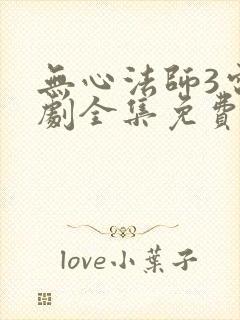 無心法師3
劇全集免費
love小葉子